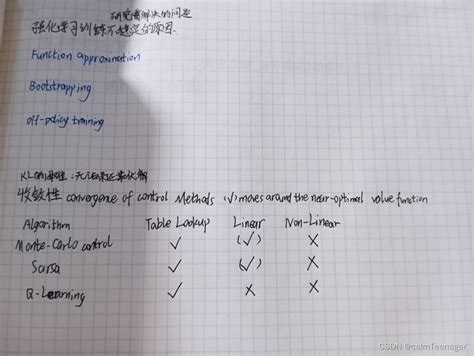 研究需解决的问题
强化学习训练不稳定的原因.
Function approximation
Bootstrapping
off-policy training
RL的弊性:无法保证最优解
收敛性 convergence of control Methods (√) moves around the near-optimal value function
Algorithm Table Lookup Linear Non-Linear
Monte-Carlo control √ (√) X
Sarsa √ (√) X
Q-Learning √ X X
CSDN @calmTeenager